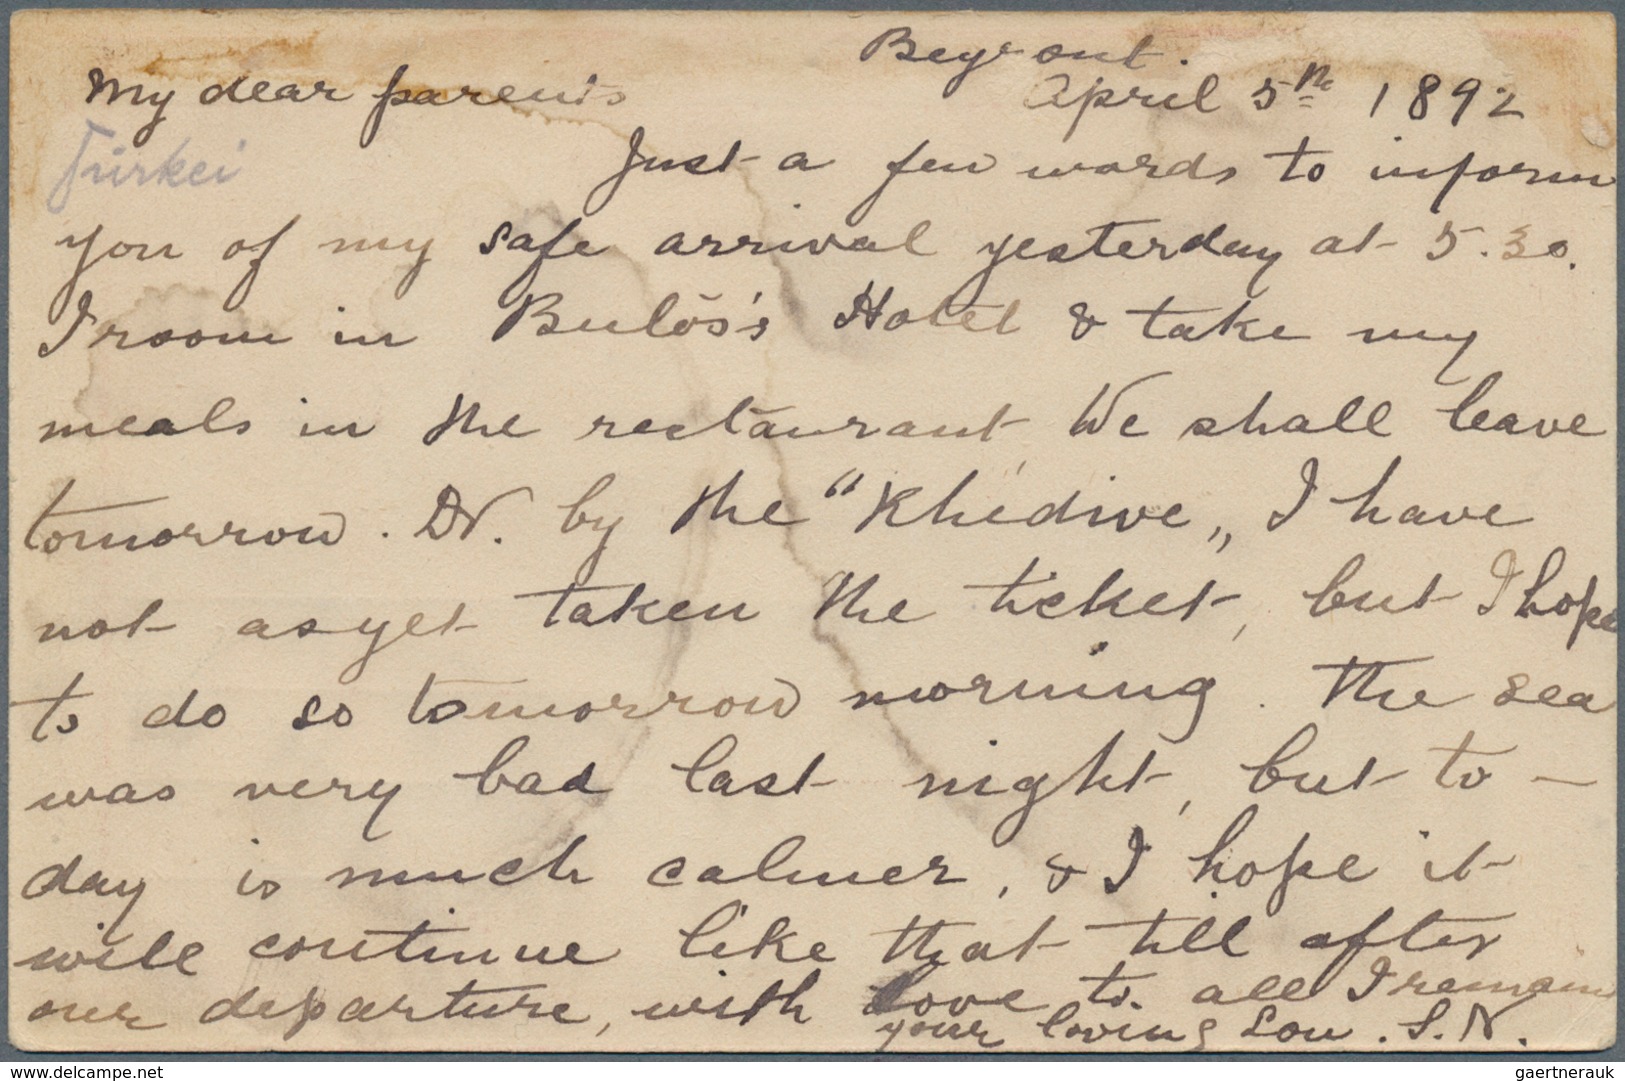 Beyrout.
My dear parents April 5th 1892
Türkei
Just a few words to inform
you of my safe arrival yesterday at 5.30.
I room in Bulŏs's Hotel & take my
meals in the restaurant, We shall leave
tomorrow. D.V. by the "Khedive„ I have
not as yet taken the ticket, but I hope
to do so tomorrow morning. The sea
was very bad last night, but to-
day is much calmer, & I hope it
will continue like that till after
our departure, with love to all I remain
your loving Son. S.N.
delcampe.net
gaertnerauk